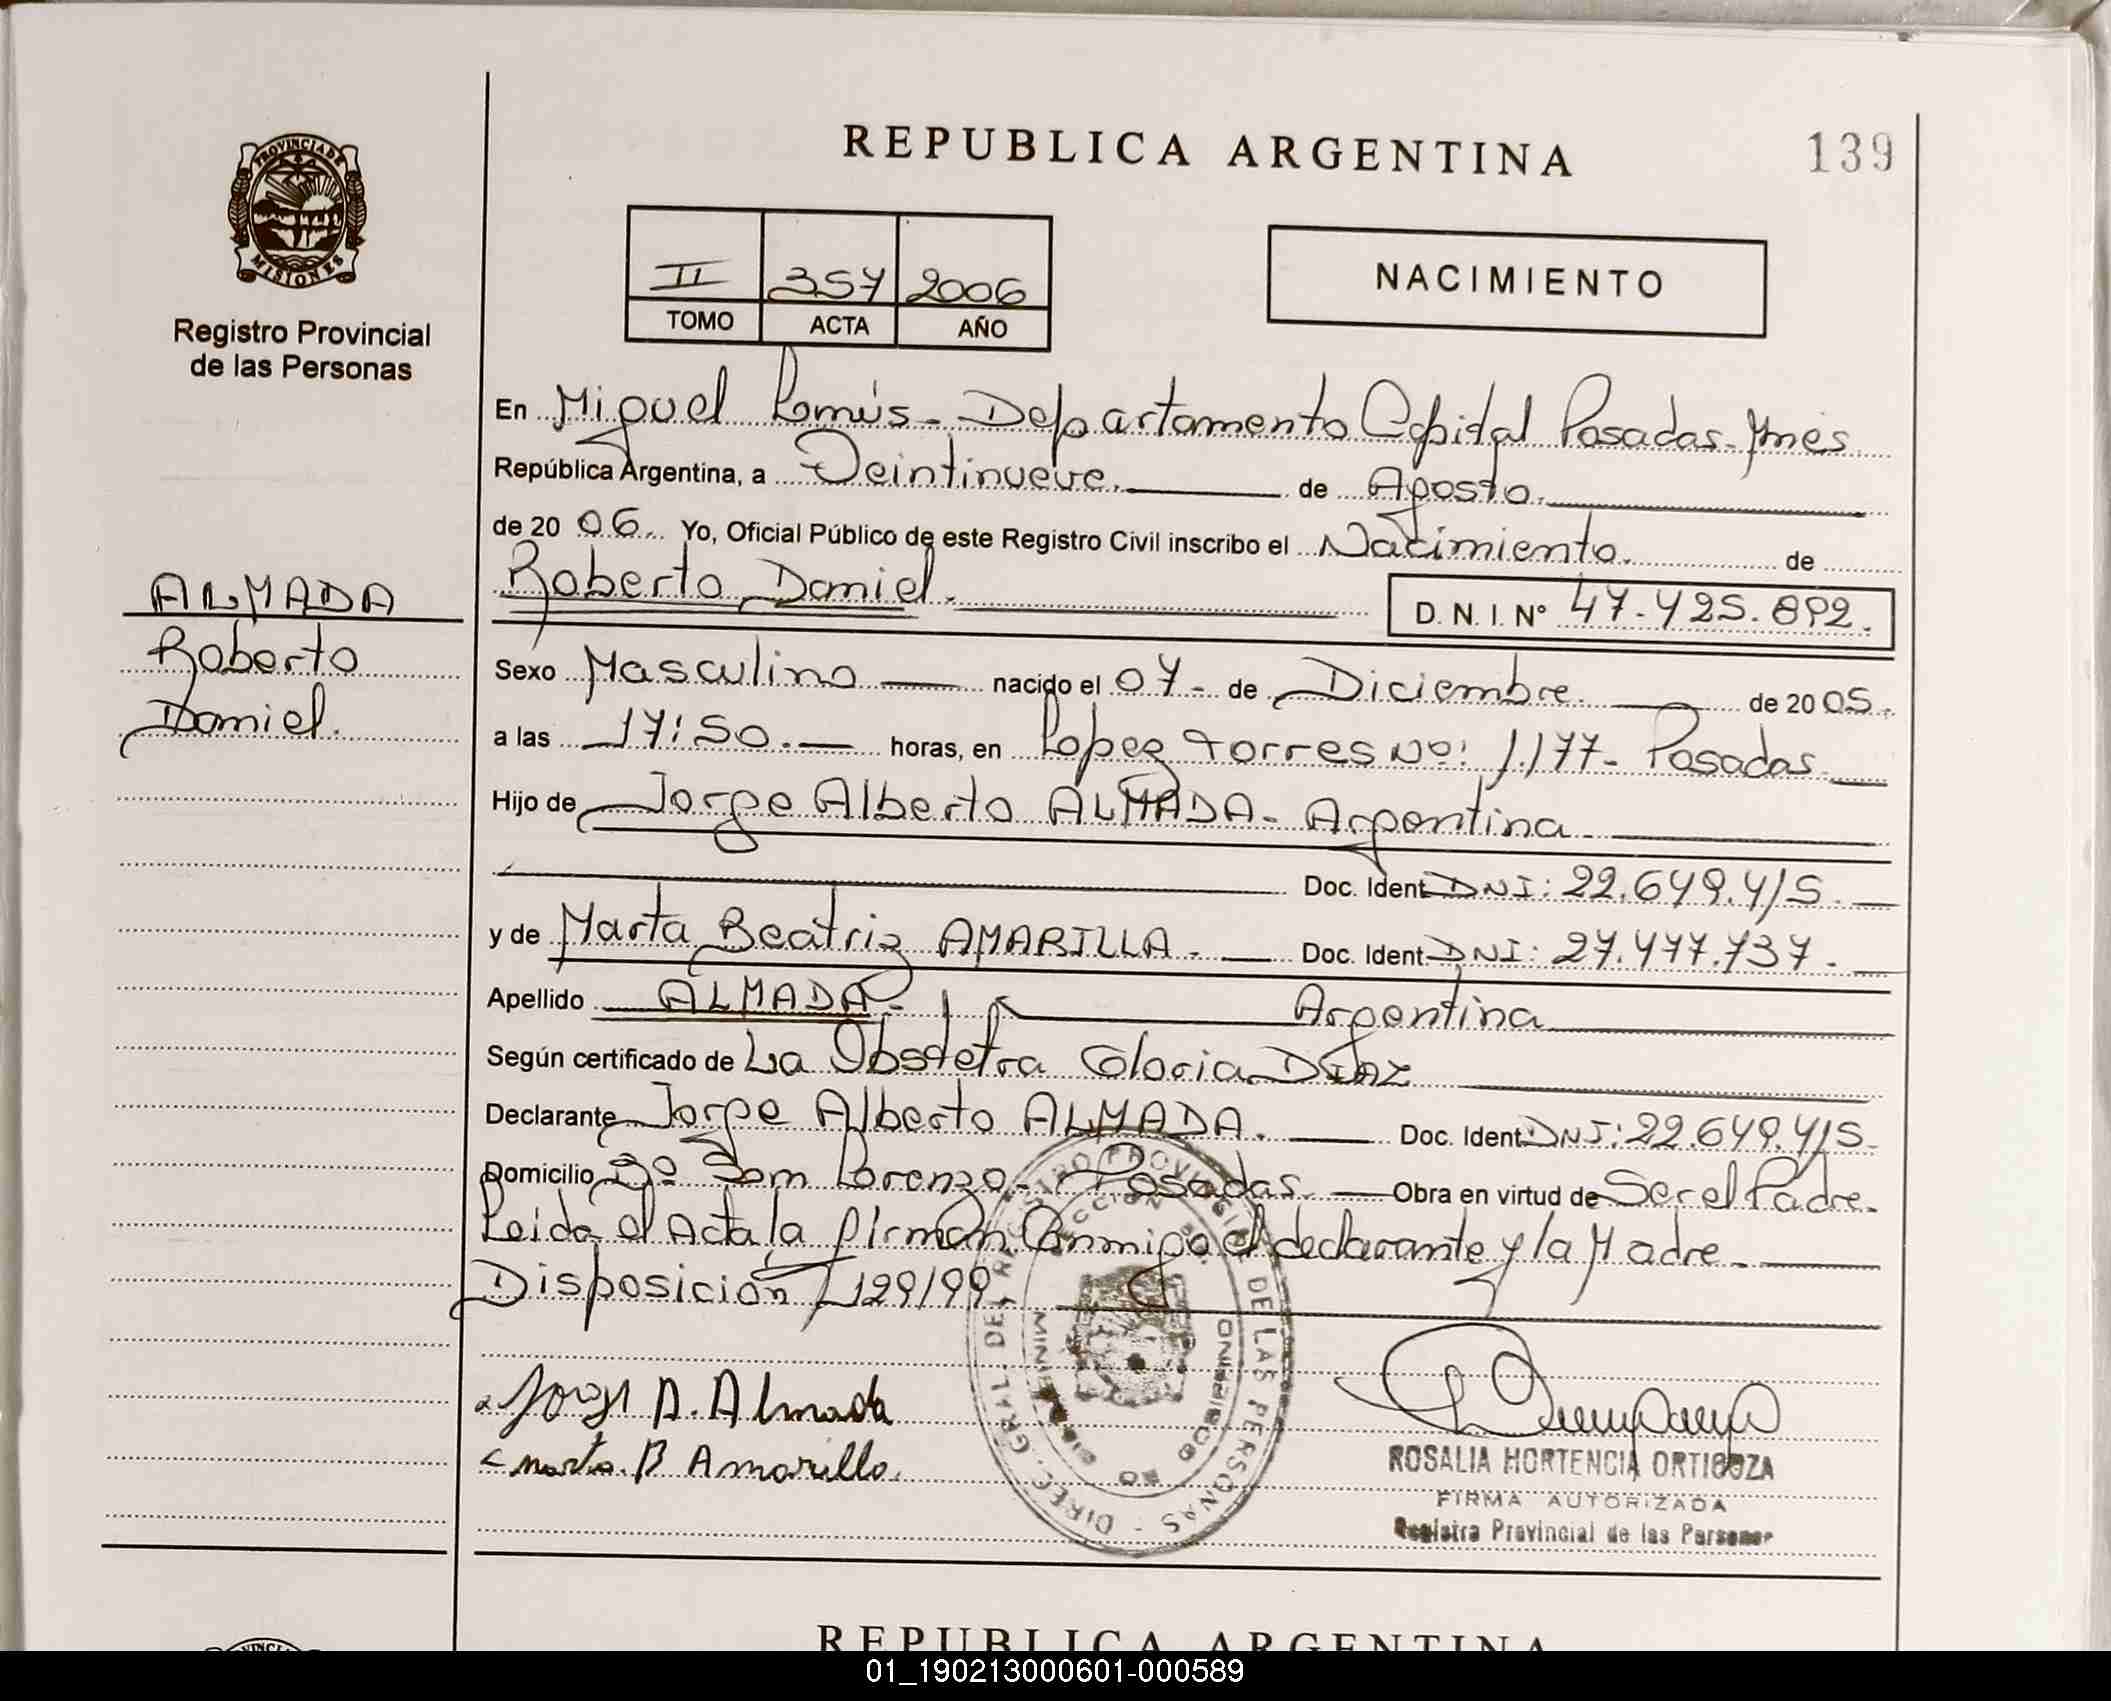 PROVINCIA DE
MISIONES
Registro Provincial
de las Personas
ALMADA
Roberto
Daniel.
REPUBLICA ARGENTINA
139
II 357 2006
TOMO ACTA AÑO
NACIMIENTO
En Miguel Lanús - Departamento Capital Posadas - Mnes
República Argentina, a Veintinueve. de Agosto.
de 20 06. Yo, Oficial Público de este Registro Civil inscribo el Nacimiento. de
Roberto Daniel. D. N. I. Nº 47.425.892.
Sexo Masculino nacido el 07 - de Diciembre. de 20 05.
a las 17:50. horas, en Lopez Torres Nº: 1.177 - Posadas
Hijo de Jorge Alberto ALMADA - Argentina
Doc. Ident. DNI: 22.649.415.
y de Marta Beatriz AMARILLA. Doc. Ident. DNI: 27.477.737.
Apellido ALMADA - Argentina
Según certificado de La Obstetra Gloria DÍAZ
Declarante Jorge Alberto ALMADA. Doc. Ident. DNI: 22.649.415.
Domicilio Bº San Lorenzo - Posadas. Obra en virtud de Ser el Padre.
Leida el Acta, la firman Conmigo el declarante y la Madre.
Disposición 129/99.
Jorge A. Almada
Marta. B Amarilla.
DIREC. GRAL. DEL REGISTRO PROVINCIAL DE LAS PERSONAS
ROSALIA HORTENCIA ORTIGOZA
FIRMA AUTORIZADA
Registro Provincial de las Personas
PROVINCIA
REPUBLICA ARGENTINA
01_190213000601-000589